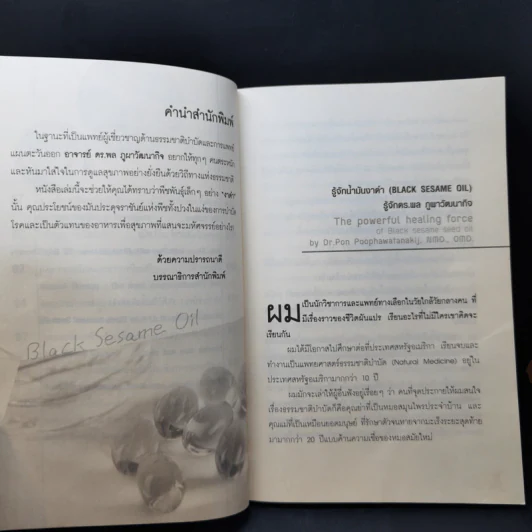 คำนำสำนักพิมพ์
ในฐานะที่เป็นแพทย์ผู้เชี่ยวชาญด้านธรรมชาติบำบัดและการแพทย์
แผนตะวันออก อาจารย์ ดร.พล ภูผาวัฒนากิจ อยากให้ทุกๆ คนตระหนัก
และหันมาใส่ใจในการดูแลสุขภาพอย่างยั่งยืนด้วยวิถีทางแห่งธรรมชาติ
หนังสือเล่มนี้จะช่วยให้คุณได้ทราบว่าพืชพันธุ์เล็กๆ อย่าง "งาดำ"
นั้น คุณประโยชน์ของมันประดุจราชันย์แห่งพืชทั้งปวงในแง่ของการบำบัด
โรคและเป็นตัวแทนของอาหารเพื่อสุขภาพที่แสนจะมหัศจรรย์อย่างไร
ด้วยความปรารถนาดี
บรรณาธิการสำนักพิมพ์
Black Sesame Oil
รู้จักน้ำมันงาดำ (BLACK SESAME OIL)
รู้จักดร.พล ภูผาวัฒนากิจ
The powerful healing force
of Black sesame seed oil
by Dr.Pon Poophawatanakij, NMD., OMD.
ผมเป็นนักวิชาการและแพทย์ทางเลือกในวัยใกล้วัยกลางคน ที่
มีเรื่องราวของชีวิตผันแปร เรียนอะไรที่ไม่มีใครเขาคิดจะ
เรียนกัน
ผมได้มีโอกาสไปศึกษาต่อที่ประเทศสหรัฐอเมริกา เรียนจบและ
ทำงานเป็นแพทยศาสตร์ธรรมชาติบำบัด (Natural Medicine) อยู่ใน
ประเทศสหรัฐอเมริกามากกว่า 10 ปี
ผมมักจะเล่าให้ผู้อื่นฟังอยู่เรื่อยๆ ว่า คนที่จุดประกายให้ผมสนใจ
เรื่องธรรมชาติบำบัดก็คือคุณย่าที่เป็นหมอสมุนไพรประจำบ้าน และ
คุณแม่ที่เป็นเหมือนยอดมนุษย์ ที่รักษาตัวจนหายจากมะเร็งระยะสุดท้าย
มามากกว่า 20 ปีแบบค้านความเชื่อของหมอสมัยใหม่